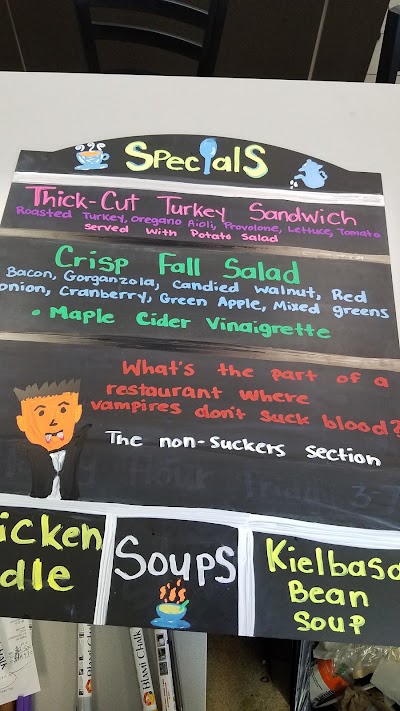 Specials
Thick-Cut Turkey Sandwich
Roasted Turkey, oregano Aioli, Provolone, Lettuce, Tomato
served with Potato Salad
Crisp Fall Salad
Bacon, Gorganzola, Candied walnut, Red
onion, Cranberry, Green Apple, Mixed greens
• Maple Cider Vinaigrette
What's the part of a
restaurant where
vampires don't suck blood?
The non-suckers section
icken
dle
Soups
Kielbasa
Bean
Soup
Blami Chalk